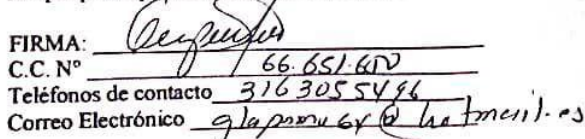 FIRMA:
C.C. Nº 66.651.650
Teléfonos de contacto 316 305 5496
Correo Electrónico @ hotmail.es